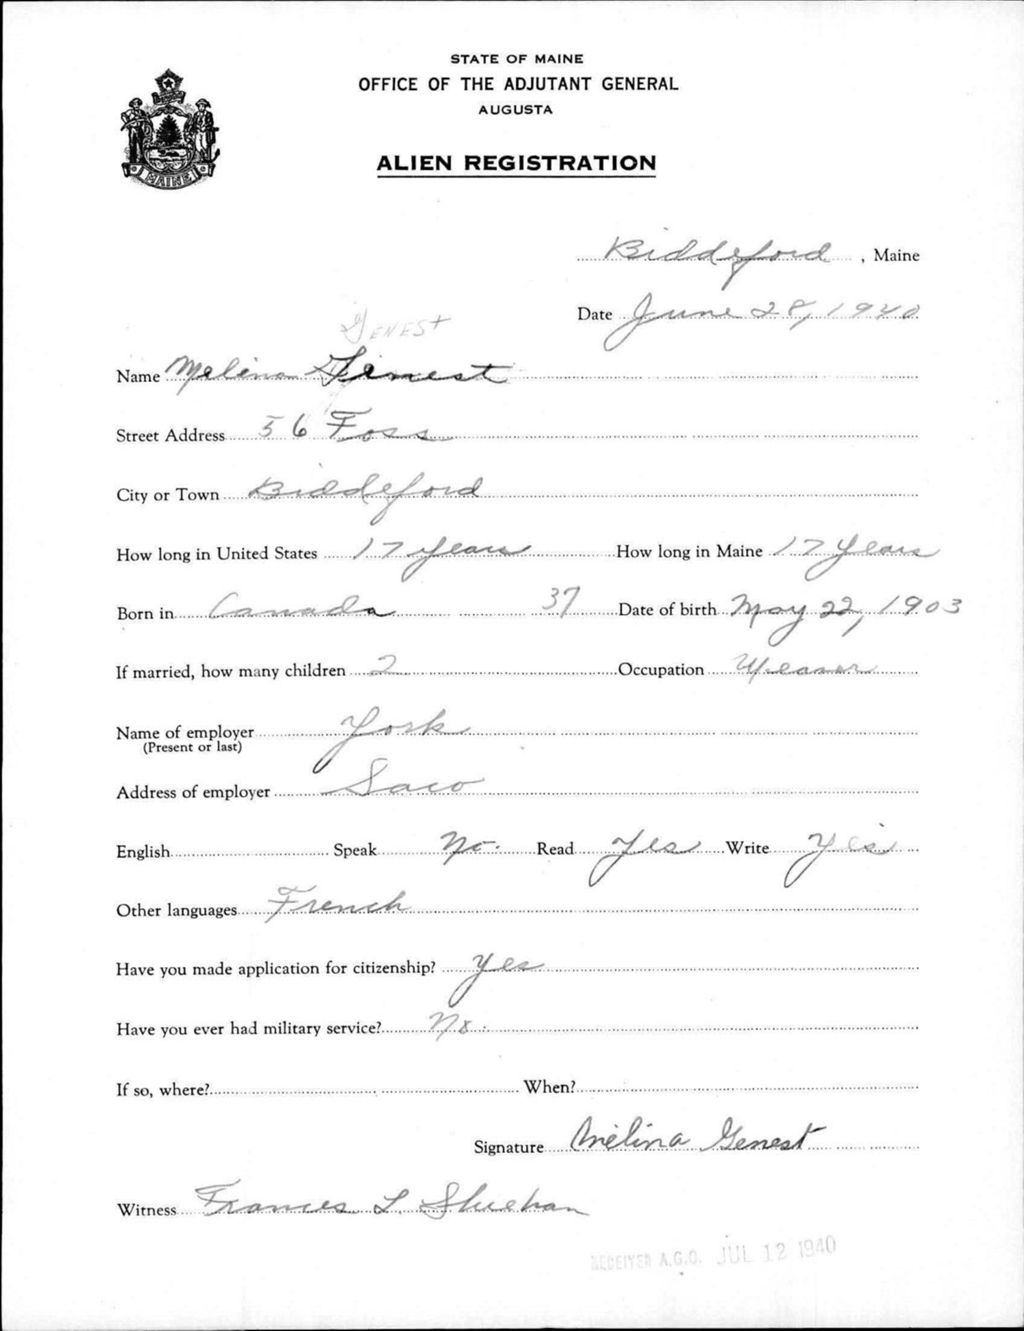 STATE OF MAINE
OFFICE OF THE ADJUTANT GENERAL
AUGUSTA
MAINE
ALIEN REGISTRATION
Biddeford, Maine
Date June 28, 1940
Genest
Name Melina Genest
Street Address 56 Foss
City or Town Biddeford
How long in United States 17 years How long in Maine 17 years
Born in Canada 37 Date of birth May 22, 1903
If married, how many children 2 Occupation Weaver
Name of employer York
(Present or last)
Address of employer Saco
English Speak No. Read Yes Write Yes
Other languages French
Have you made application for citizenship? Yes
Have you ever had military service? No.
If so, where? When?
Signature Mélina Genest
Witness Frances L. Sheehan
RECEIVED A.G.O. JUL 12 1940